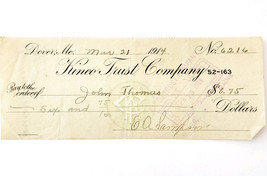 Dover, Me. Mar 21 1914 No. 6216
Kineo Trust Company 52-163
Pay to the order of John Thomas $6.75
Six and 75/100 Dollars